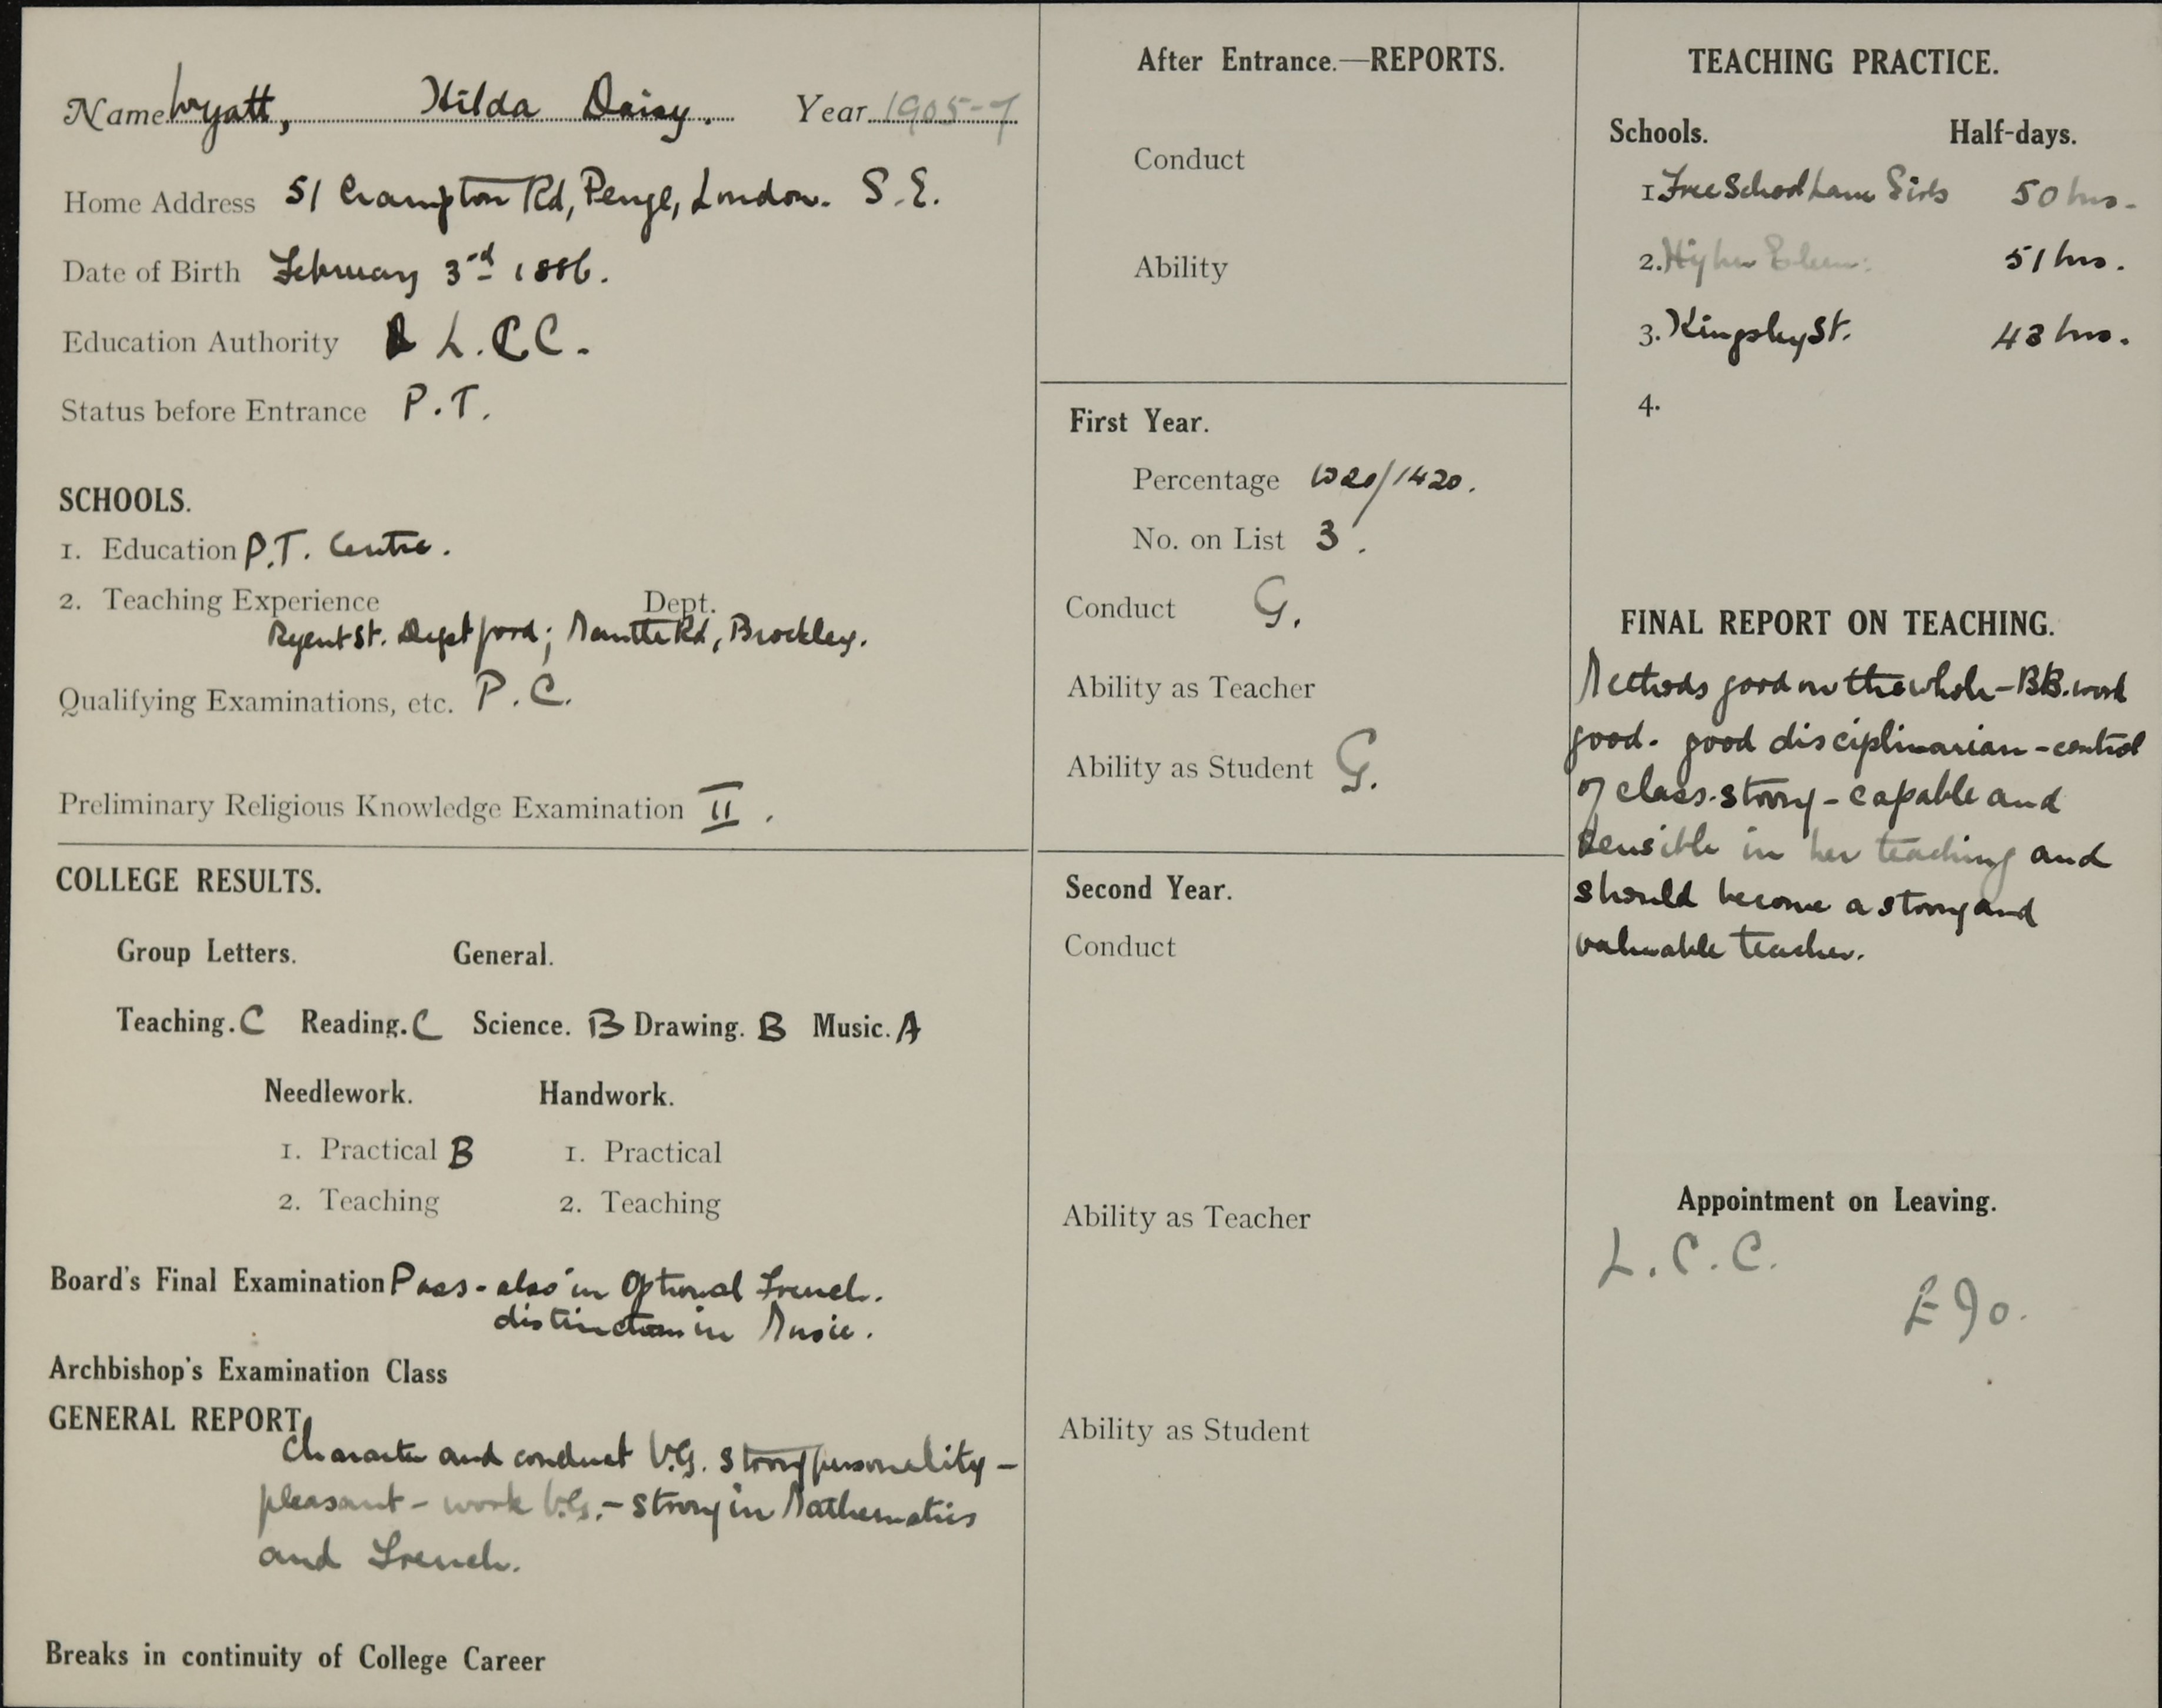 Name Wyatt, Hilda Daisy. Year 1905-7
Home Address 51 Crampton Rd, Penge, London. S.E.
Date of Birth February 3rd 1886.
Education Authority L.C.C.
Status before Entrance P.T.
SCHOOLS.
1. Education P.T. Centre.
2. Teaching Experience Dept.
Regent St. Deptford; Mantle Rd, Brockley.
Qualifying Examinations, etc. P.C.
Preliminary Religious Knowledge Examination II.
COLLEGE RESULTS.
Group Letters. General.
Teaching. C Reading. C Science. B Drawing. B Music. A
Needlework. Handwork.
1. Practical B 1. Practical
2. Teaching 2. Teaching
Board's Final Examination Pass - also in Optional French.
distinction in Music.
Archbishop's Examination Class
GENERAL REPORT
Character and conduct V.G. strong personality -
pleasant - work V.G. - strong in Mathematics
and French.
Breaks in continuity of College Career
After Entrance.—REPORTS.
Conduct
Ability
First Year.
Percentage 1020/1420.
No. on List 3.
Conduct G.
Ability as Teacher
Ability as Student G.
Second Year.
Conduct
Ability as Teacher
Ability as Student
TEACHING PRACTICE.
Schools. Half-days.
1. Free School Lane Girls 50 hrs.
2. Higher Elem: 51 hrs.
3. Kingsley St. 43 hrs.
4.
FINAL REPORT ON TEACHING.
Methods good on the whole - BB. work
good. good disciplinarian - control
of class strong - capable and
sensible in her teaching and
should become a strong and
valuable teacher.
Appointment on Leaving.
L.C.C.
£90.